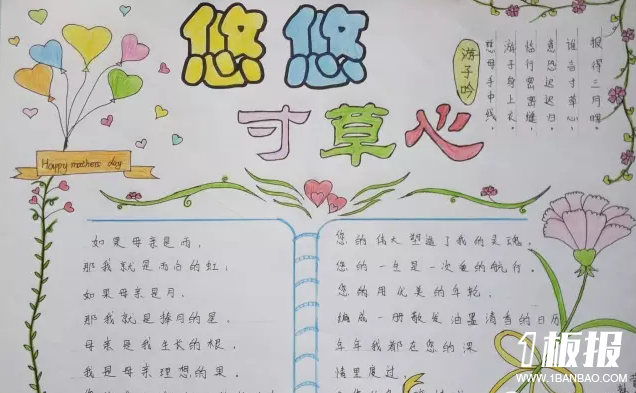 悠悠
寸草心
游子吟
慈母手中线,
游子身上衣。
临行密密缝,
意恐迟迟归。
谁言寸草心,
报得三月晖。
Happy mothers day
如果母亲是雨,
那我就是雨后的虹;
如果母亲是月,
那我就是捧月的星。
母亲是我生长的根,
我是母亲理想的果。
您的伟大塑造了我的灵魂,
您的一生是一次爱的航行。
您的用优美的年轮,
编成一册散发油墨清香的日历
年年我都在您的深
情里度过,
1板报
WWW.1BANBAO.COM